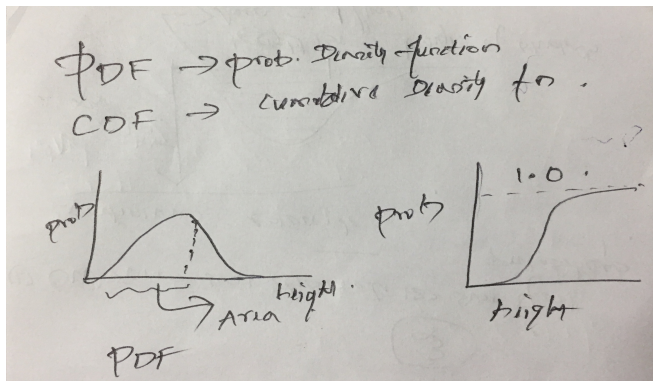 PDF → prob. Density function
CDF → cumulative Density fn.
prob
height.
Area
PDF
1.0.
prob
height